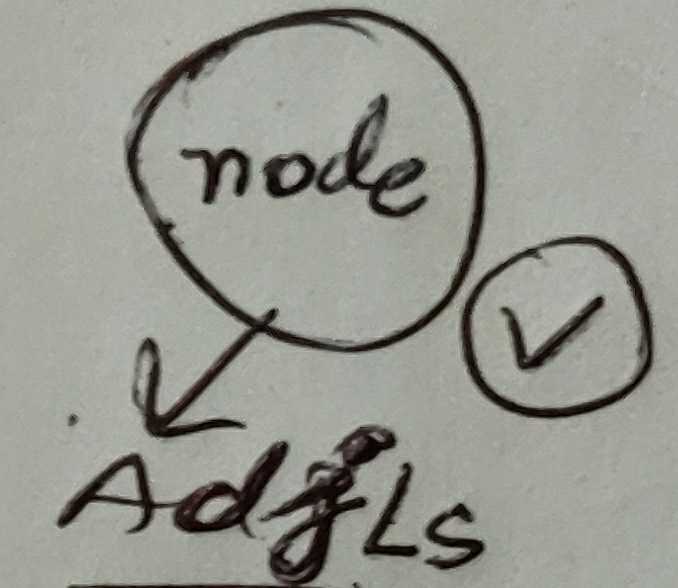 node
AdjLs